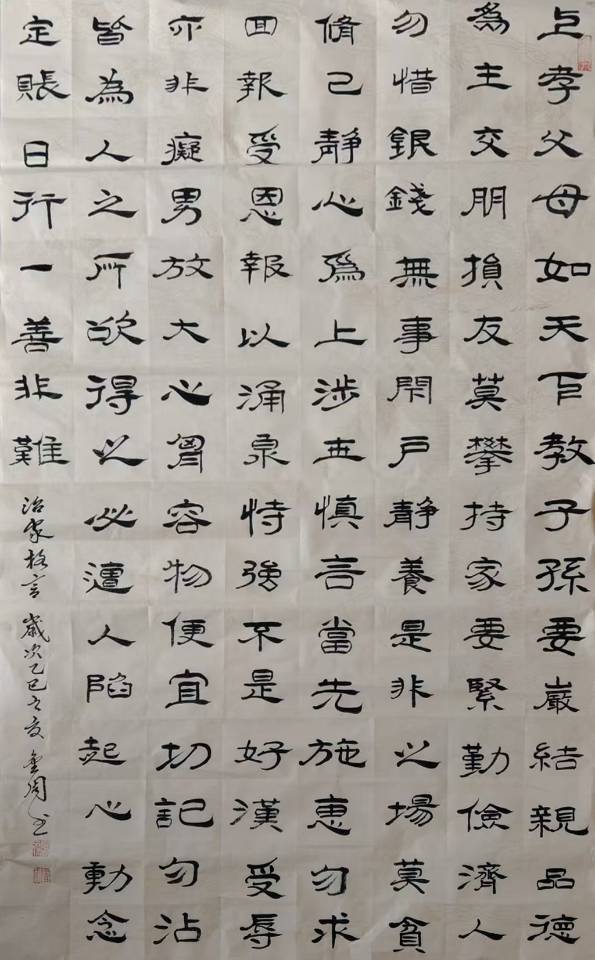 上孝父母如天下教子孫要嚴結親品德
為主交朋損友莫攀持家要緊勤儉濟人
勿惜銀錢無事閇戶靜養是非之場莫貪
脩己靜心爲上涉世慎言當先施惠勿求
回報受恩報以涌泉恃強不是好漢受辱
亦非癡男放大心胷容物便宜切記勿沾
皆為人之所欲得之必遭人陷起心動念
定賬日行一善非難
治家格言 歲次乙巳之夏 金周书